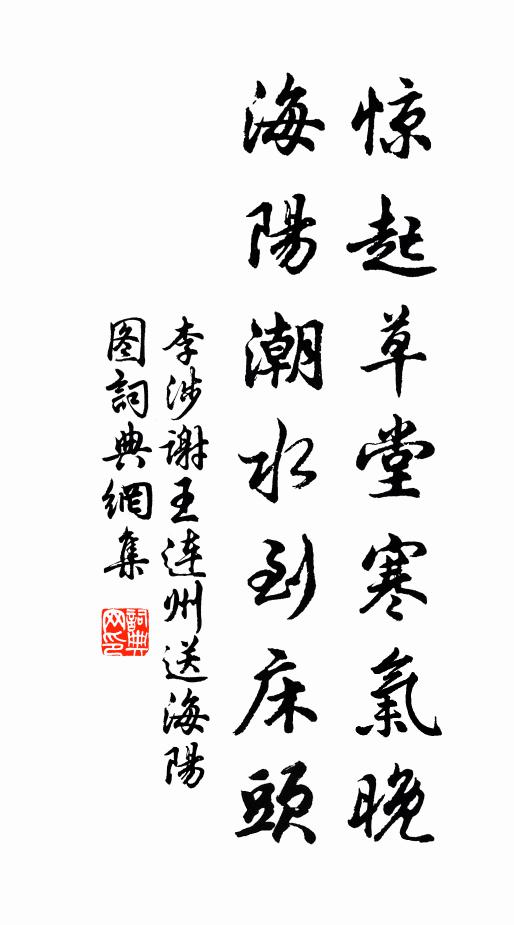 惊起草堂寒氣晚
海陽潮水到床頭
李涉謝王连州送海陽
图詞典網集
詞典
网印